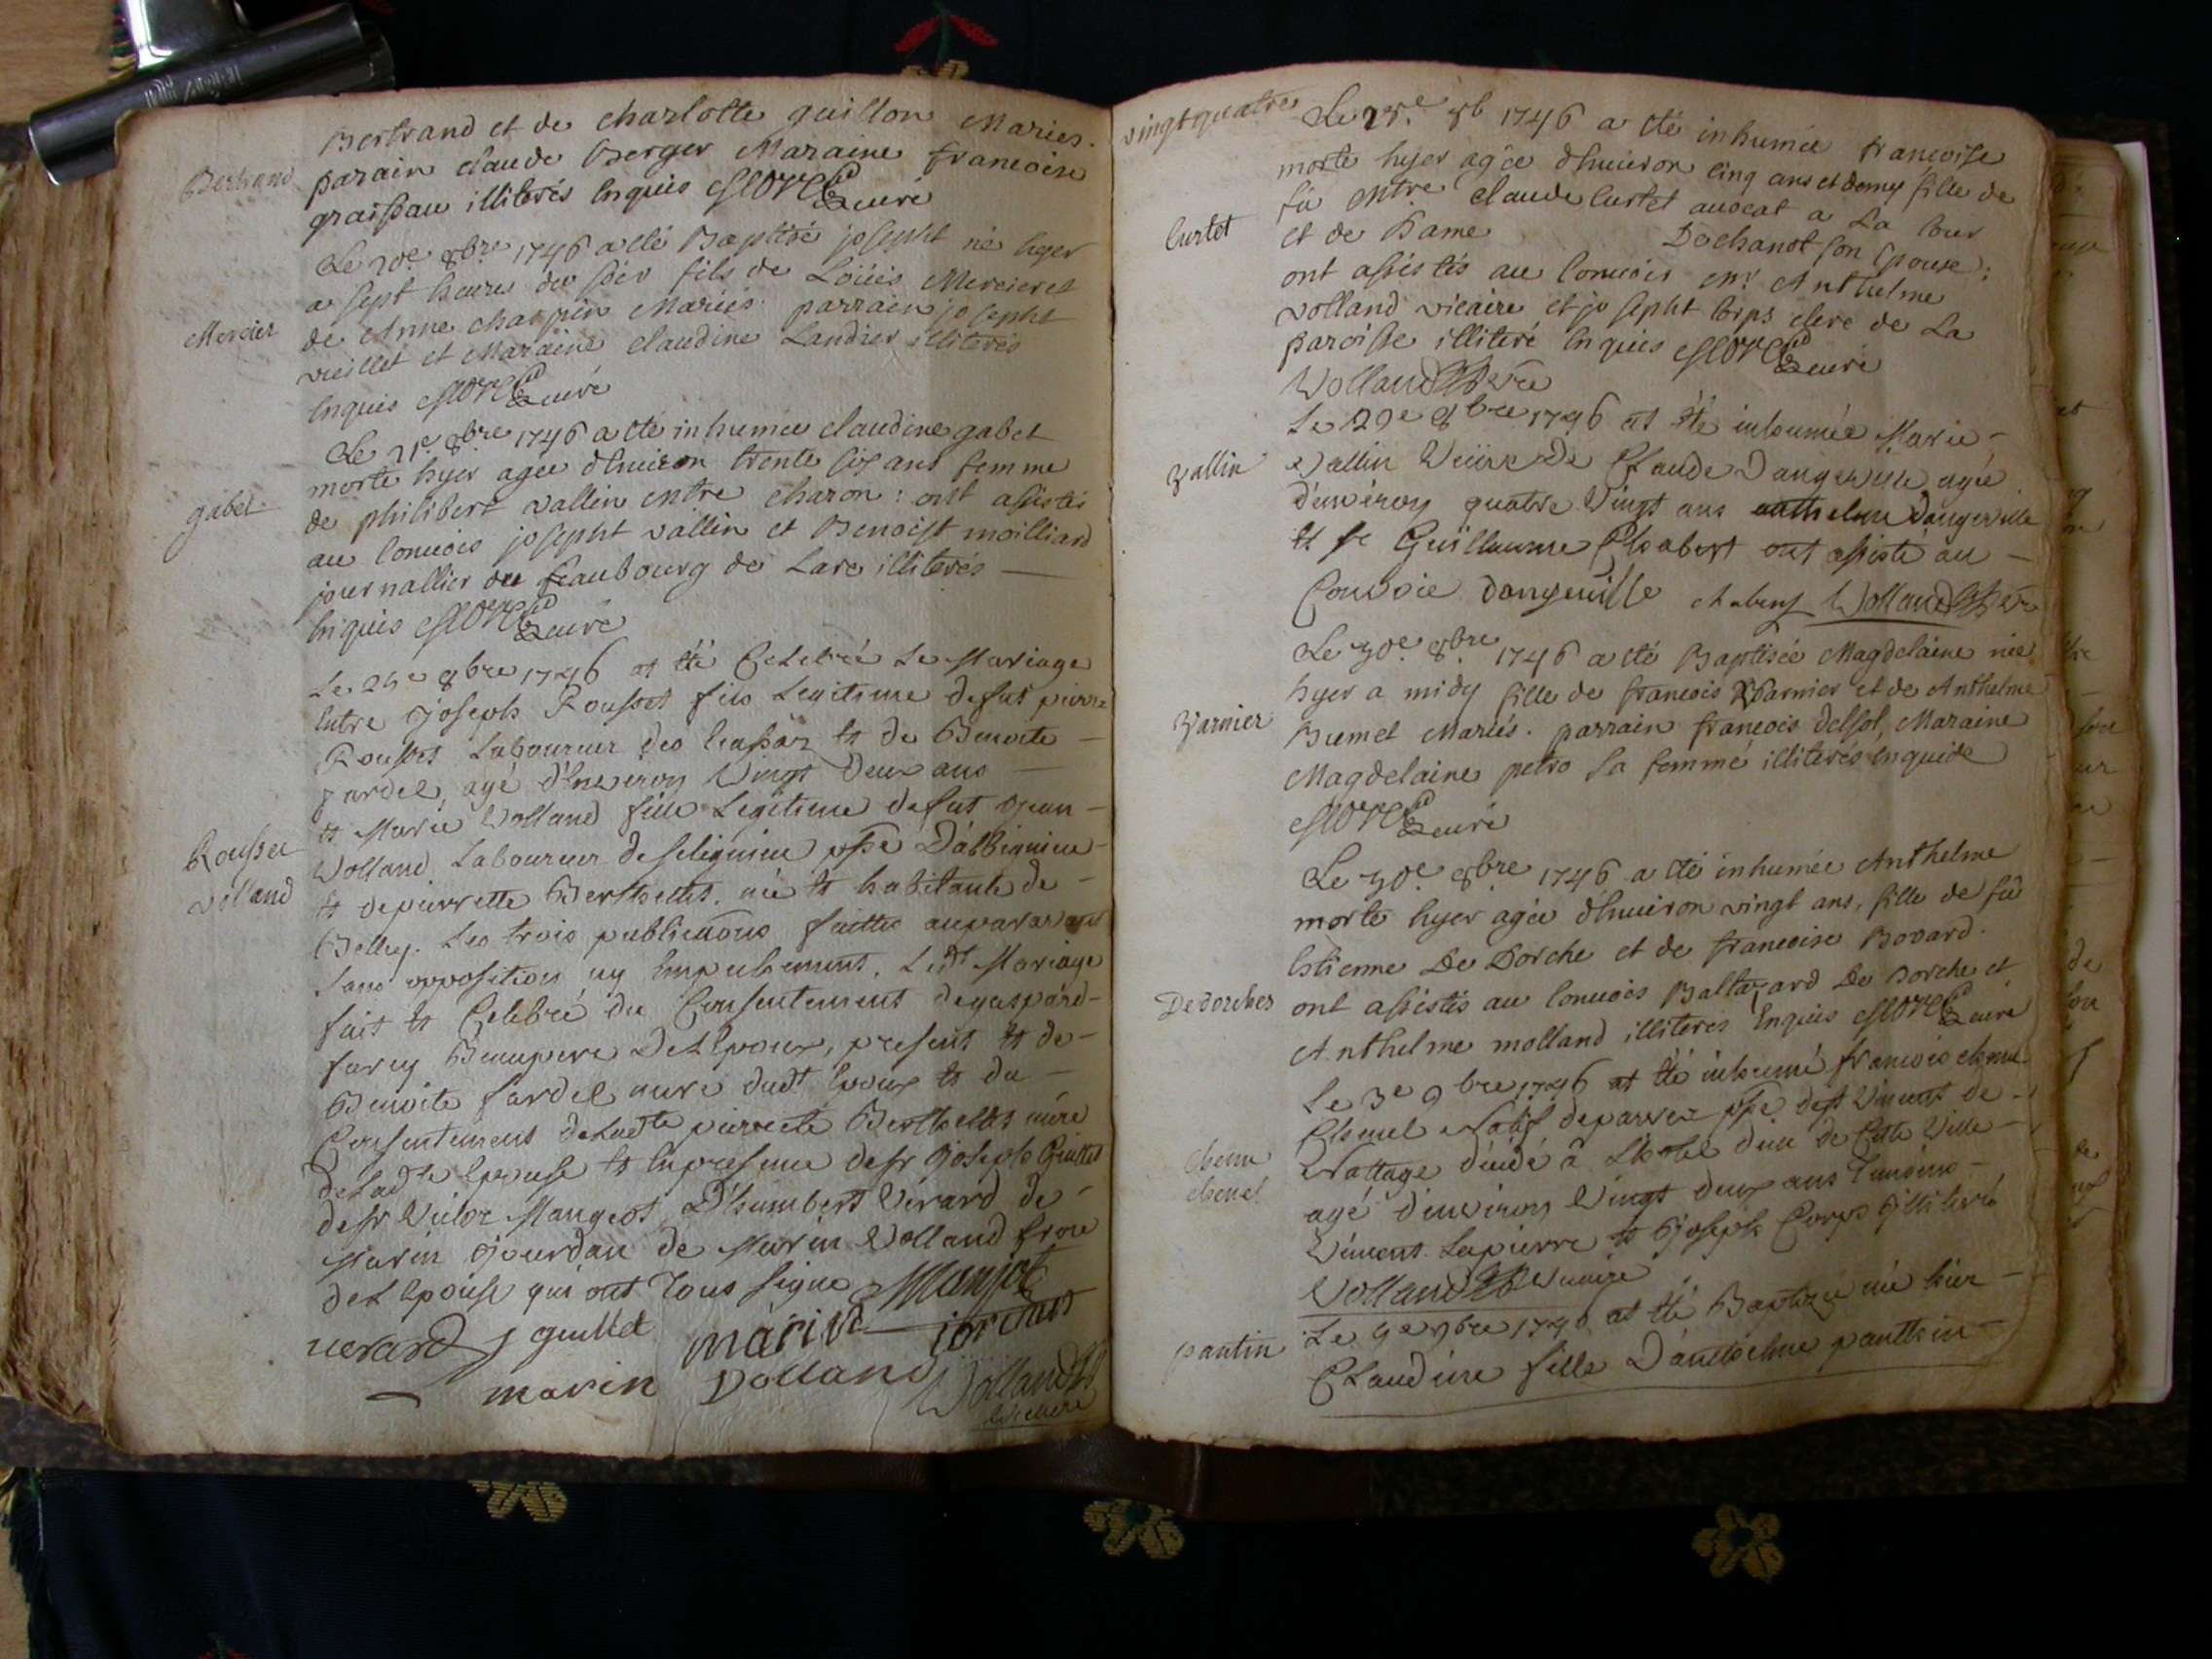 Bertrand et de charlotte guillon Maries.
Bertrand
parain claude Berger Maraine francoise
graissau illiterés Enquis curé
Le 20e 8bre 1746 a été Baptisé josepht né hyer
a sept heures du soir fils de Loüis Mercier et
Mercier
de Anne chaspin Mariés. parrain josepht
vieillet et Maraine claudine Landier illiterés
Enquis curé
Le 21e 8bre 1746 a été inhumée claudine gabet
morte hyer agee d'huiron trente six ans femme
gabet
de philibert vallin entre charon : ont assistés
au convois josepht vallin et Benoist moilliard
journallier du feaubourg de Lare illiterés
Enquis curé
Le 25e 8bre 1746 at été Celebré Le Mariage
Entre joseph Rousset fils Legitime de fut pierre
Rousset Laboureur des et de Benoite
fardel, agé d'Environ Vingt Deux ans
et Marie Volland fille Legitime de fut Jean
Rousset
Volland Laboureur de selignieu psse D'albignieu
volland
et de pierrette Berthellet. née et habitante de
Belley. Les trois publications faittes auparavant
sans opposition ny Empechement. Ledt Mariage
fait et Celebré du Consentement de gaspard
farcy Beaupere De Lepoux, present et de
Benoite fardel mere dudt Epoux et du
Consentement de Ladte pierrette Berthellet mére
de Ladte Epouse et En presence de sr Joseph Guillet
de sr Victor Mangeot, D'humbert Vérard de
Marin Jourdan de Marin Volland frere
de L Epouse qui ont Tous signe Manjot
verard j guillet marin jordan
marin volland Volland
Vicaire
vingt quatre
Le 25e 8b 1746 a été inhumée françoise
morte hyer agée d'huiron cinq ans et demy fille de
fû Mtre claude Curtet avocat a La Cour
Curtet
et de Dame Dechanot son Epouse :
ont assistés au Convois mr Anthelme
volland vicaire et josepht Corps clerc de La
paroisse illiteré Enquis curé
Volland vre
Le 29e 8bre 1746 at été inhumée Marie
Vallin
Vallin Veuve de Claude Dangeville agée
d'environ quatre Vingt ans anthelme Dangeville
et sr Guillaume Chabert ont assisté au
Convoie dangeuille chabert Volland
Le 30e 8bre 1746 a été Baptisée Magdelaine née
hyer a midy fille de francois Varnier et de Anthelme
Varnier
Bumet Mariés. parrain françois delsol, Maraine
Magdelaine petro sa femme illiterés Enquise
curé
Le 30e 8bre 1746 a été inhumée Anthelme
morte hyer agée d'huiron vingt ans, fille de fû
Estienne De Dorche et de francoise Bovard.
De dorches
ont assistés au Convois Baltazard De Dorche et
Anthelme molland illiterés Enquis curé
Le 3e 9bre 1746 at été inhumé francois chenu
Chenel Natif de parvez psse de st Vincent de
chenu
Nattage déidé á L'hotel dieu de Cette Ville
chenel
agé d'environ Vingt deux ans Temoins
Vincent Lapierre et Joseph Corps Illiterés
Volland Vicaire
pantin
Le 4e 9bre 1746 at été Baptizée née hier
Claudine fille D'anthelme panthin